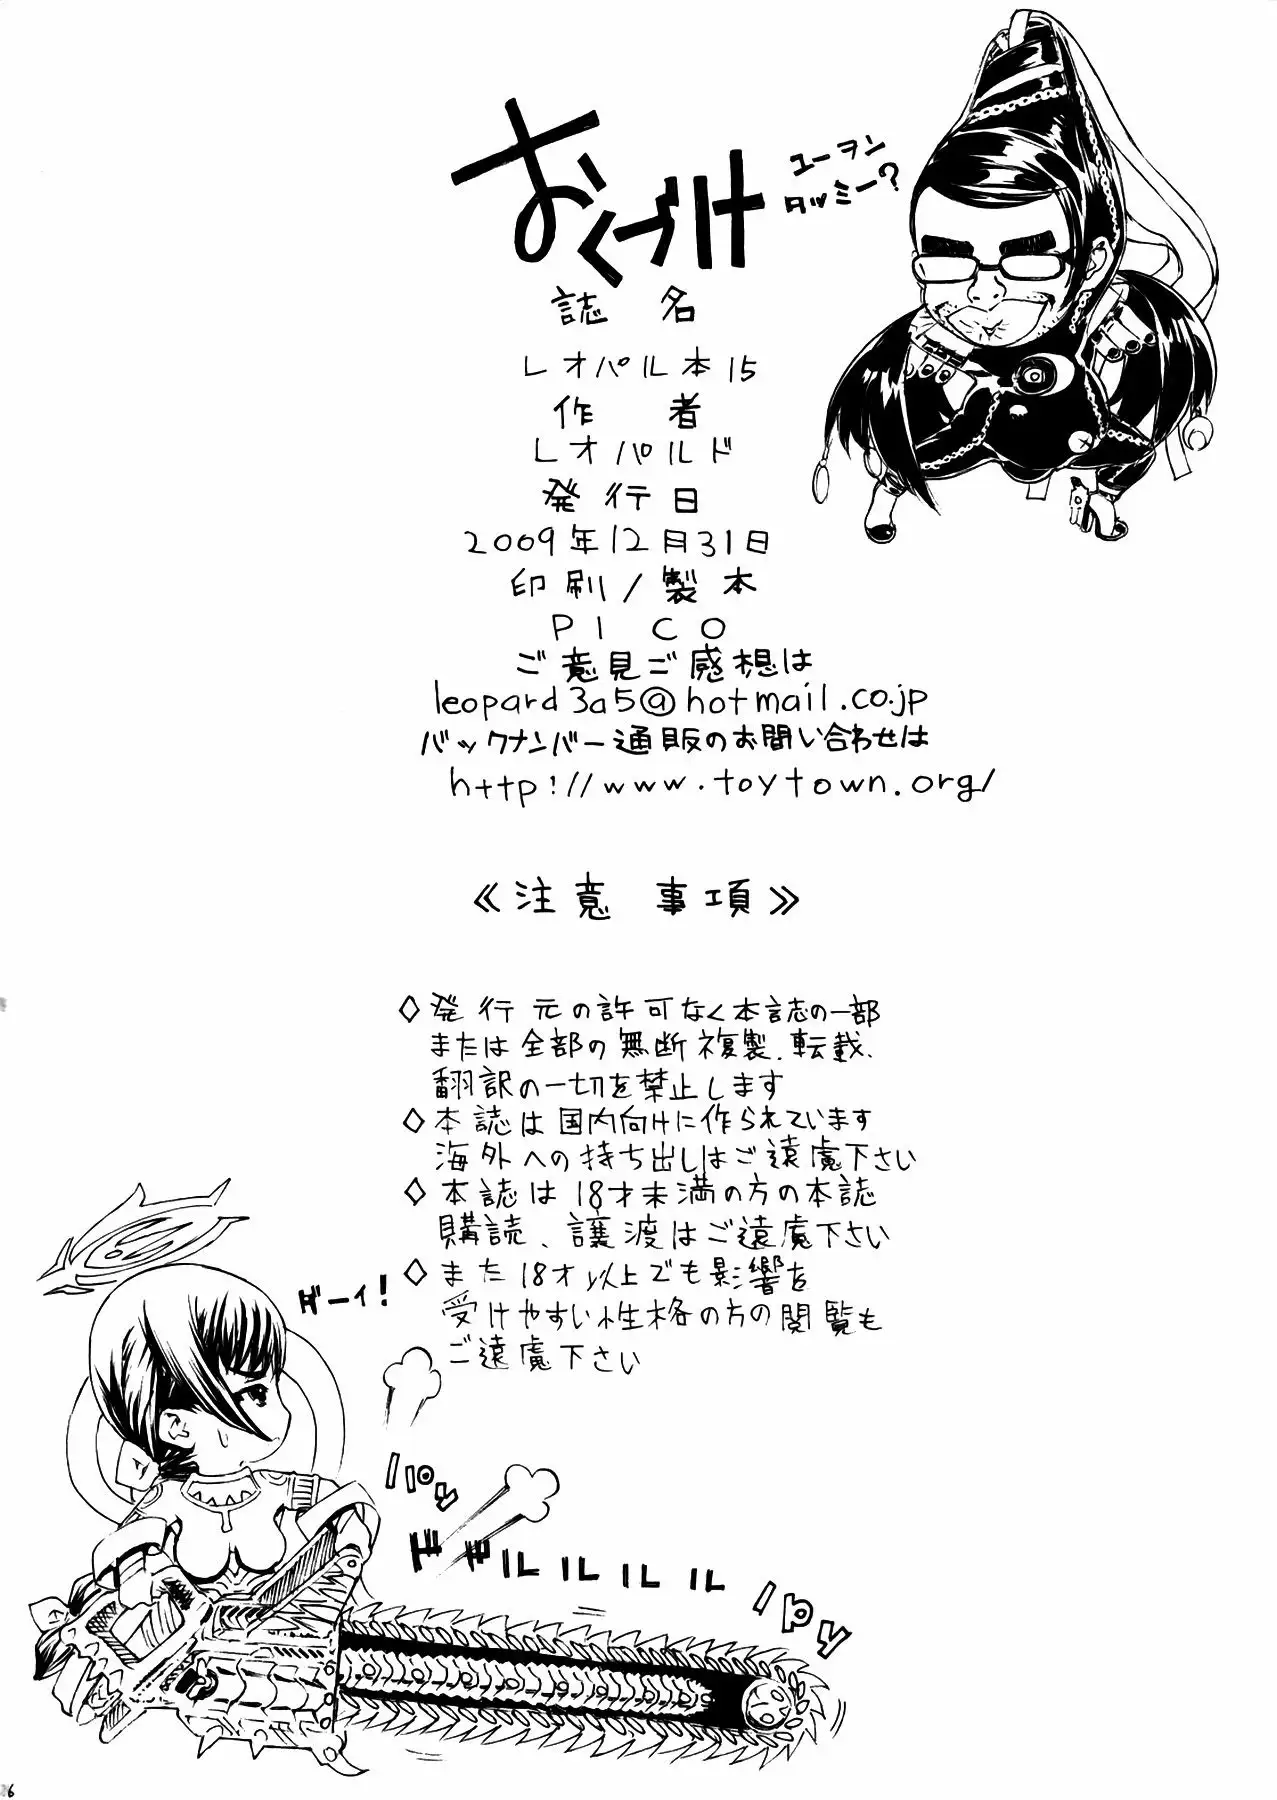 おくづけ
ユーヲン
タッミー?
誌名
レオパル本15
作者
レオパルド
発行日
2009年12月31日
印刷/製本
PICO
ご意見ご感想は
leopard3a5@hotmail.co.jp
バックナンバー通販のお問い合わせは
http://www.toytown.org/
≪注意 事項≫
◇発行元の許可なく本誌の一部
または全部の無断複製、転載、
翻訳の一切を禁止します
◇本誌は国内向けに作られています
海外への持ち出しはご遠慮下さい
◇本誌は18才未満の方の本誌
購読、譲渡はご遠慮下さい
◇また18才以上でも影響を
受けやすい性格の方の閲覧も
ご遠慮下さい
ダーイ!
パパッ
ドドルルルル
パパッ